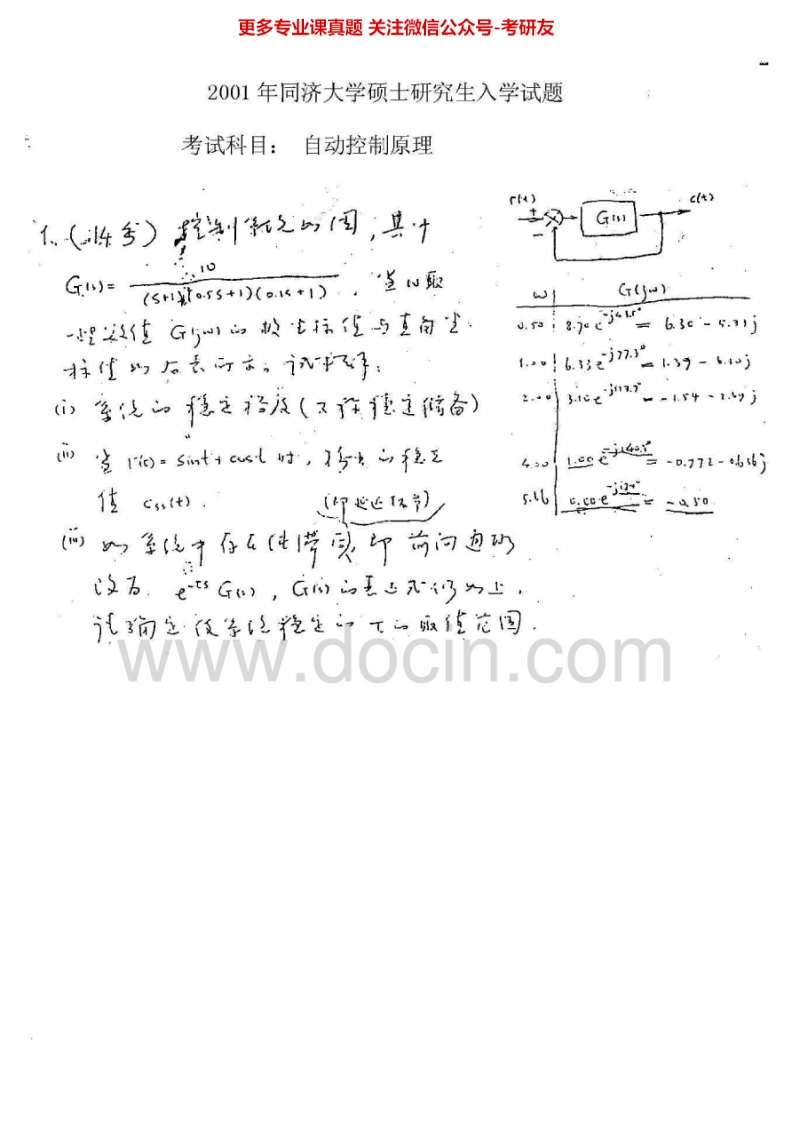 更多专业课真题 关注微信公众号-考研友
2001 年同济大学硕士研究生入学试题
考试科目： 自动控制原理
r(t) + - G(s) c(t)
1.(14分) 控制系统如图,其中
G(s)= 10 / (s+1)(0.5s+1)(0.1s+1) . 当ω取
一些数值 G(jω)的极坐标值与直角坐
标值如右表所示。试求解:
(i) 系统的稳定裕度(又称稳定储备)
(ii) 当 r(t)= sint+cost 时, 的稳态
值 css(t).
(即延迟环节)
(iii) 如系统中存在 即前向通道
改为 e^-τs G(s), G(s)的表达式仍如上,
试确定使系统稳定的 τ的取值范围.
ω G(jω)
0.50 8.70 e^-j43.5° = 6.30 - 5.99j
1.00 6.33 e^-j77.3° = 1.39 - 6.10j
2.00 3.10 e = -1.54 - 2.69j
4.00 1.00 e^-j140.5° = -0.772 - 0.636j
= -0.50
www.docin.com